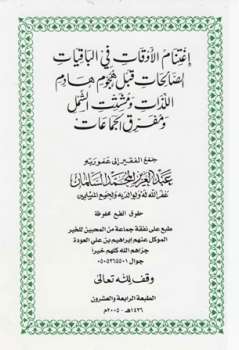 إغتنام الأوقات في الباقيات
الصالحات قبل هجوم هادم
اللذات ومشتت الشمل
ومفرق الجماعات
جمع الفقير إلى عفو ربه
عبد العزيز المحمد السلمان
غفر الله له ولوالديه ولجميع المسلمين
حقوق الطبع محفوظة
طبع على نفقة جماعة من المحبين للخير
الموكل عنهم إبراهيم بن علي العودة
جزاهم الله كلهم خيرا
جوال ٠٥٠٥٣٦٥٥٠١
وقف لله تعالى
الطبعة الرابعة والعشرون
١٤٢٦هـ - ٢٠٠٥م